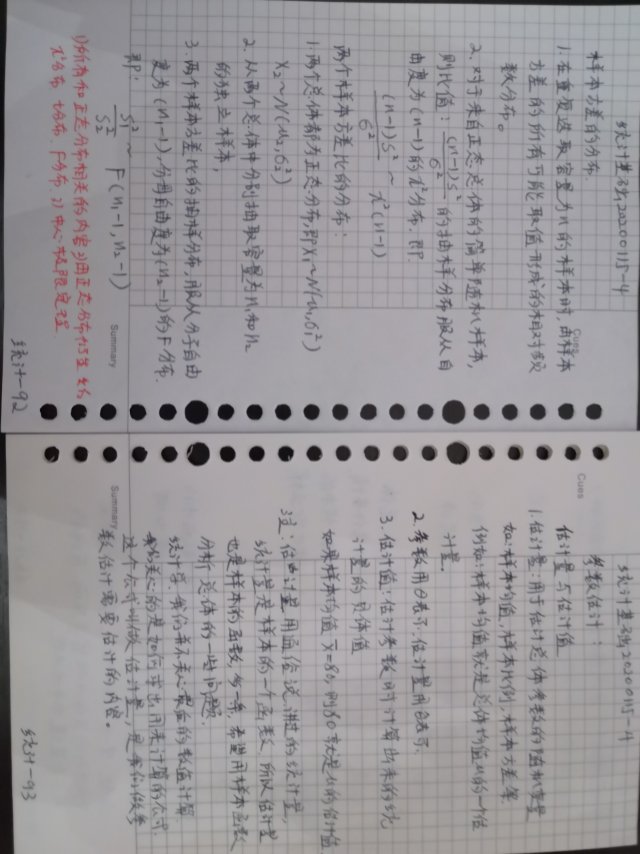 统计基础,20200115-4
样本方差的分布
1.在重复选取容量为n的样本时,由样本
方差的所有可能取值形成的相对频
数分布。
2.对于来自正态总体的简单随机样本,
则比值:(n-1)S²/σ²的抽样分布服从自
由度为(n-1)的χ²分布,即:
(n-1)S²/σ² ~ χ²(n-1)
两个样本方差比的分布:
1.两个总体都为正态分布,即X₁~N(μ₁,σ₁²)
X₂~N(μ₂,σ₂²)
2.从两个总体中分别抽取容量为n₁和n₂
的独立样本,
3.两个样本方差比的抽样分布,服从分子自由
度为(n₁-1),分母自由度为(n₂-1)的F分布.
即:
S₁²/S₂² ~ F(n₁-1,n₂-1)
1)所有和正态分布相关的内容2)由正态分布衍生
χ²分布 t分布、F分布 3)中心极限定理
Cues
Summary
统计-92
统计基础,20200115-4
参数估计:
估计量与估计值
1.估计量:用于估计总体参数的随机变量
如:样本均值,样本比例,样本方差等
例如:样本均值就是总体均值μ的一个估
计量.
2.参数用θ表示,估计量用θ̂表示.
3.估计值:估计参数时计算出来的统
计量的具体值
如果样本均值x̄=80,则80就是μ的估计值
注:估计量用通俗说,讲的统计量,
统计量是样本的一个函数,所以估计量
也是样本的函数,一个,希望用样本函数
分析总体的一些问题.
统计学,我们并不关心最后的数值计算
我们关心的是如何求出用来计算的公式,
这个公式叫做估计量,是我们做参
数估计需要估计的内容。
Cues
Summary
统计-93